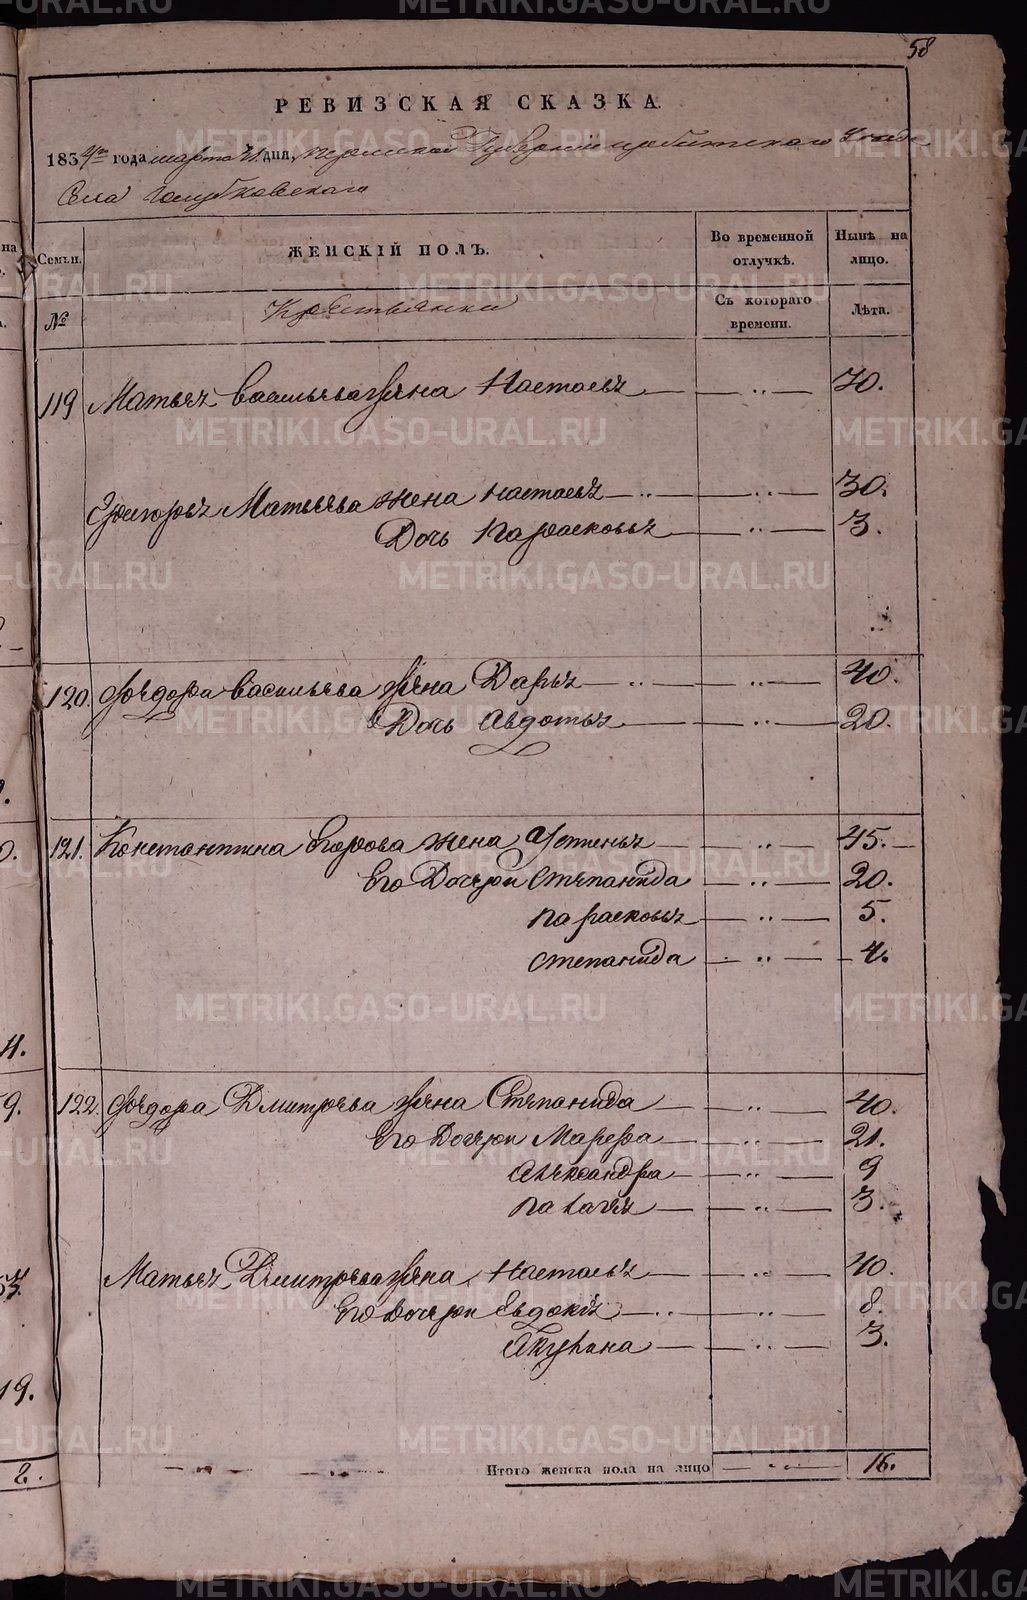 58
РЕВИЗСКАЯ СКАЗКА.
1834го года марта 21 дня, Пермской Губернии Ирбитскаго Уезда
Села Голубковскаго
Семьи. ЖЕНСКІЙ ПОЛЪ. Во временной отлучкѣ. Нынѣ на лицо.
№ Крестьянки Съ котораго времени. Лѣта.
119 Матвея Васильева жена Настасья — 70.
Григорья Матвеева жена настасья — 30.
Дочь Парасковья — 3.
120. Федора Васильева жена Дарья — 40.
Дочь Авдотья — 20.
121. Константина Егорова жена Устинья — 45.
Его Дочери Степанида — 20.
Парасковья — 5.
Степанида — 4.
122. Федора Дмитрева жена Степанида — 40.
Его Дочери Марфа — 21.
Александра — 9
Палагея — 3.
Матвея Дмитрева жена Настасья — 40.
Его Дочери Евдокия — 8.
Акулина — 3.
Итого женска пола на лицо — 16.
METRIKI.GASO-URAL.RU